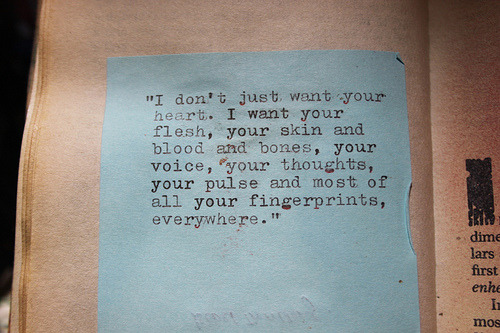 "I don't just want your
heart. I want your
flesh, your skin and
blood and bones, your
voice, your thoughts,
your pulse and most of
all your fingerprints,
everywhere."
dime
lars
first
enhe
mos